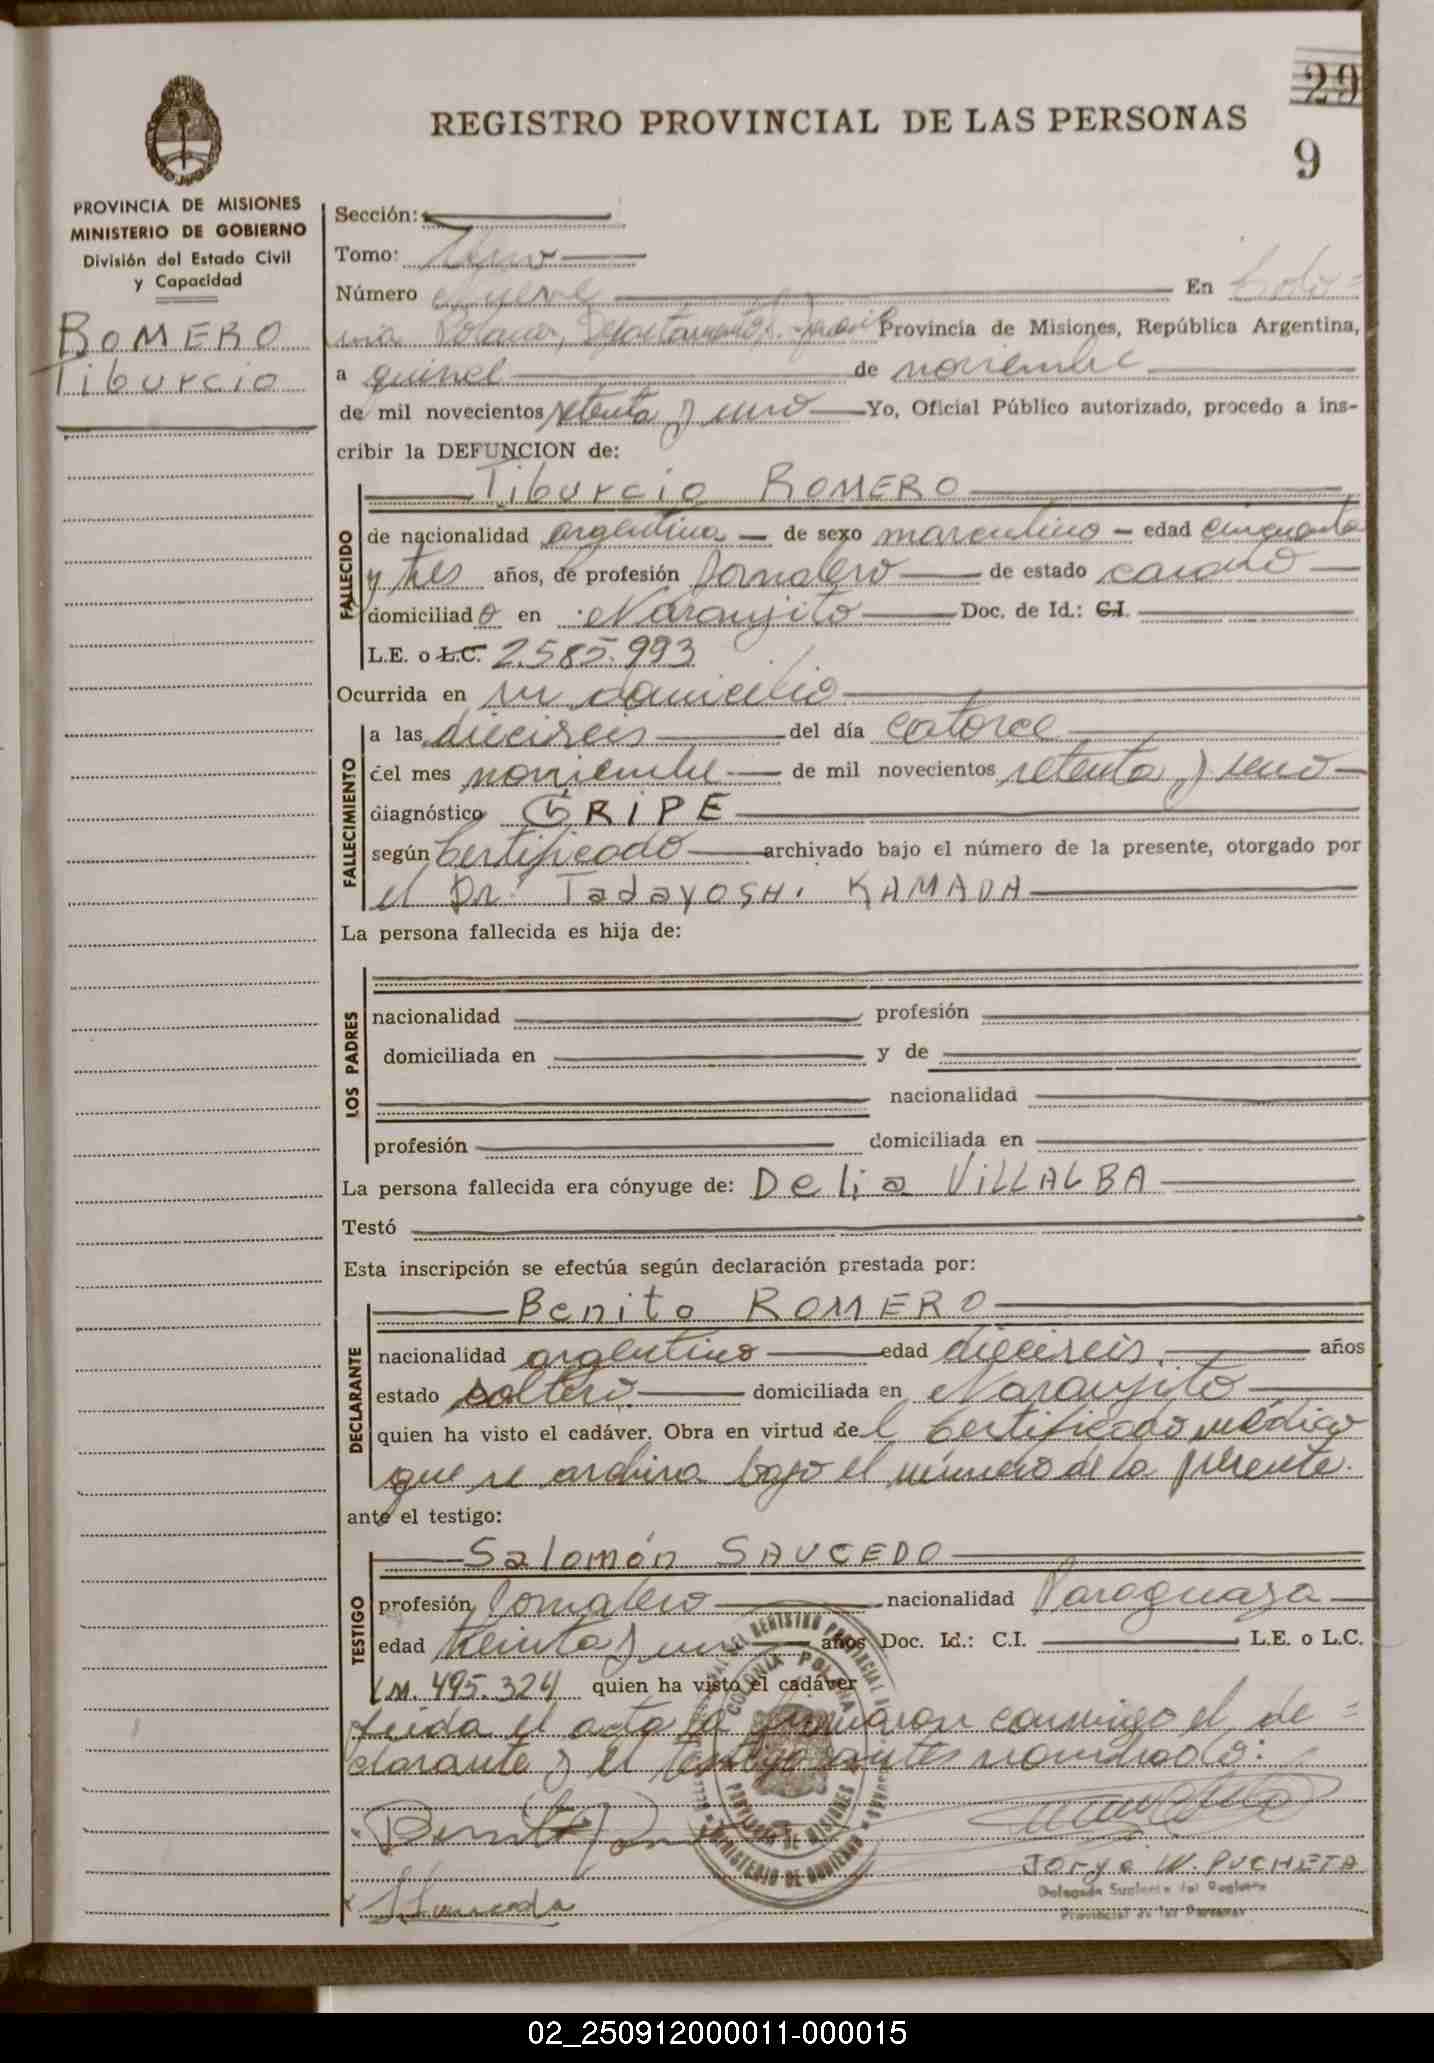 29
REGISTRO PROVINCIAL DE LAS PERSONAS
9
PROVINCIA DE MISIONES
MINISTERIO DE GOBIERNO
División del Estado Civil
y Capacidad
ROMERO
Tiburcio
Sección:
Tomo: Uno
Número Nueve En Colo=
nia Polana, Departamento S. Ignacio Provincia de Misiones, República Argentina,
a quince de noviembre
de mil novecientos setenta y uno Yo, Oficial Público autorizado, procedo a ins-
cribir la DEFUNCION de:
Tiburcio ROMERO
FALLECIDO
de nacionalidad argentina de sexo masculino edad cincuenta
y tres años, de profesión Jornalero de estado casado
domiciliado en Naranjito Doc. de Id.: C.I.
L.E. o L.C. 2.585.993
Ocurrida en su domicilio
FALLECIMIENTO
a las dieciseis del día catorce
del mes noviembre de mil novecientos setenta y uno
diagnóstico GRIPE
según Certificado archivado bajo el número de la presente, otorgado por
el Dr. Tadayoshi KAMADA
La persona fallecida es hija de:
LOS PADRES
nacionalidad profesión
domiciliada en y de
nacionalidad
profesión domiciliada en
La persona fallecida era cónyuge de: Delia VILLALBA
Testó
Esta inscripción se efectúa según declaración prestada por:
Benito ROMERO
DECLARANTE
nacionalidad argentino edad dieciseis años
estado soltero domiciliada en Naranjito
quien ha visto el cadáver. Obra en virtud del Certificado médico
que se archiva bajo el número de la presente.
ante el testigo:
Salomón SAUCEDO
TESTIGO
profesión Jornalero nacionalidad Paraguaya
edad treinta y un años Doc. Id.: C.I. L.E. o L.C.
M. 495.324 quien ha visto el cadáver
Leida el acta la firmaron conmigo el de=
clarante y el testigo antes nombrado:
COLONIA POLANA
PROVINCIA DE MISIONES
MINISTERIO DE GOBIERNO
Benito Romero
Jorge W. PUCHETA
Delegado Suplente del Registro
Provincial de las Personas
02_250912000011-000015